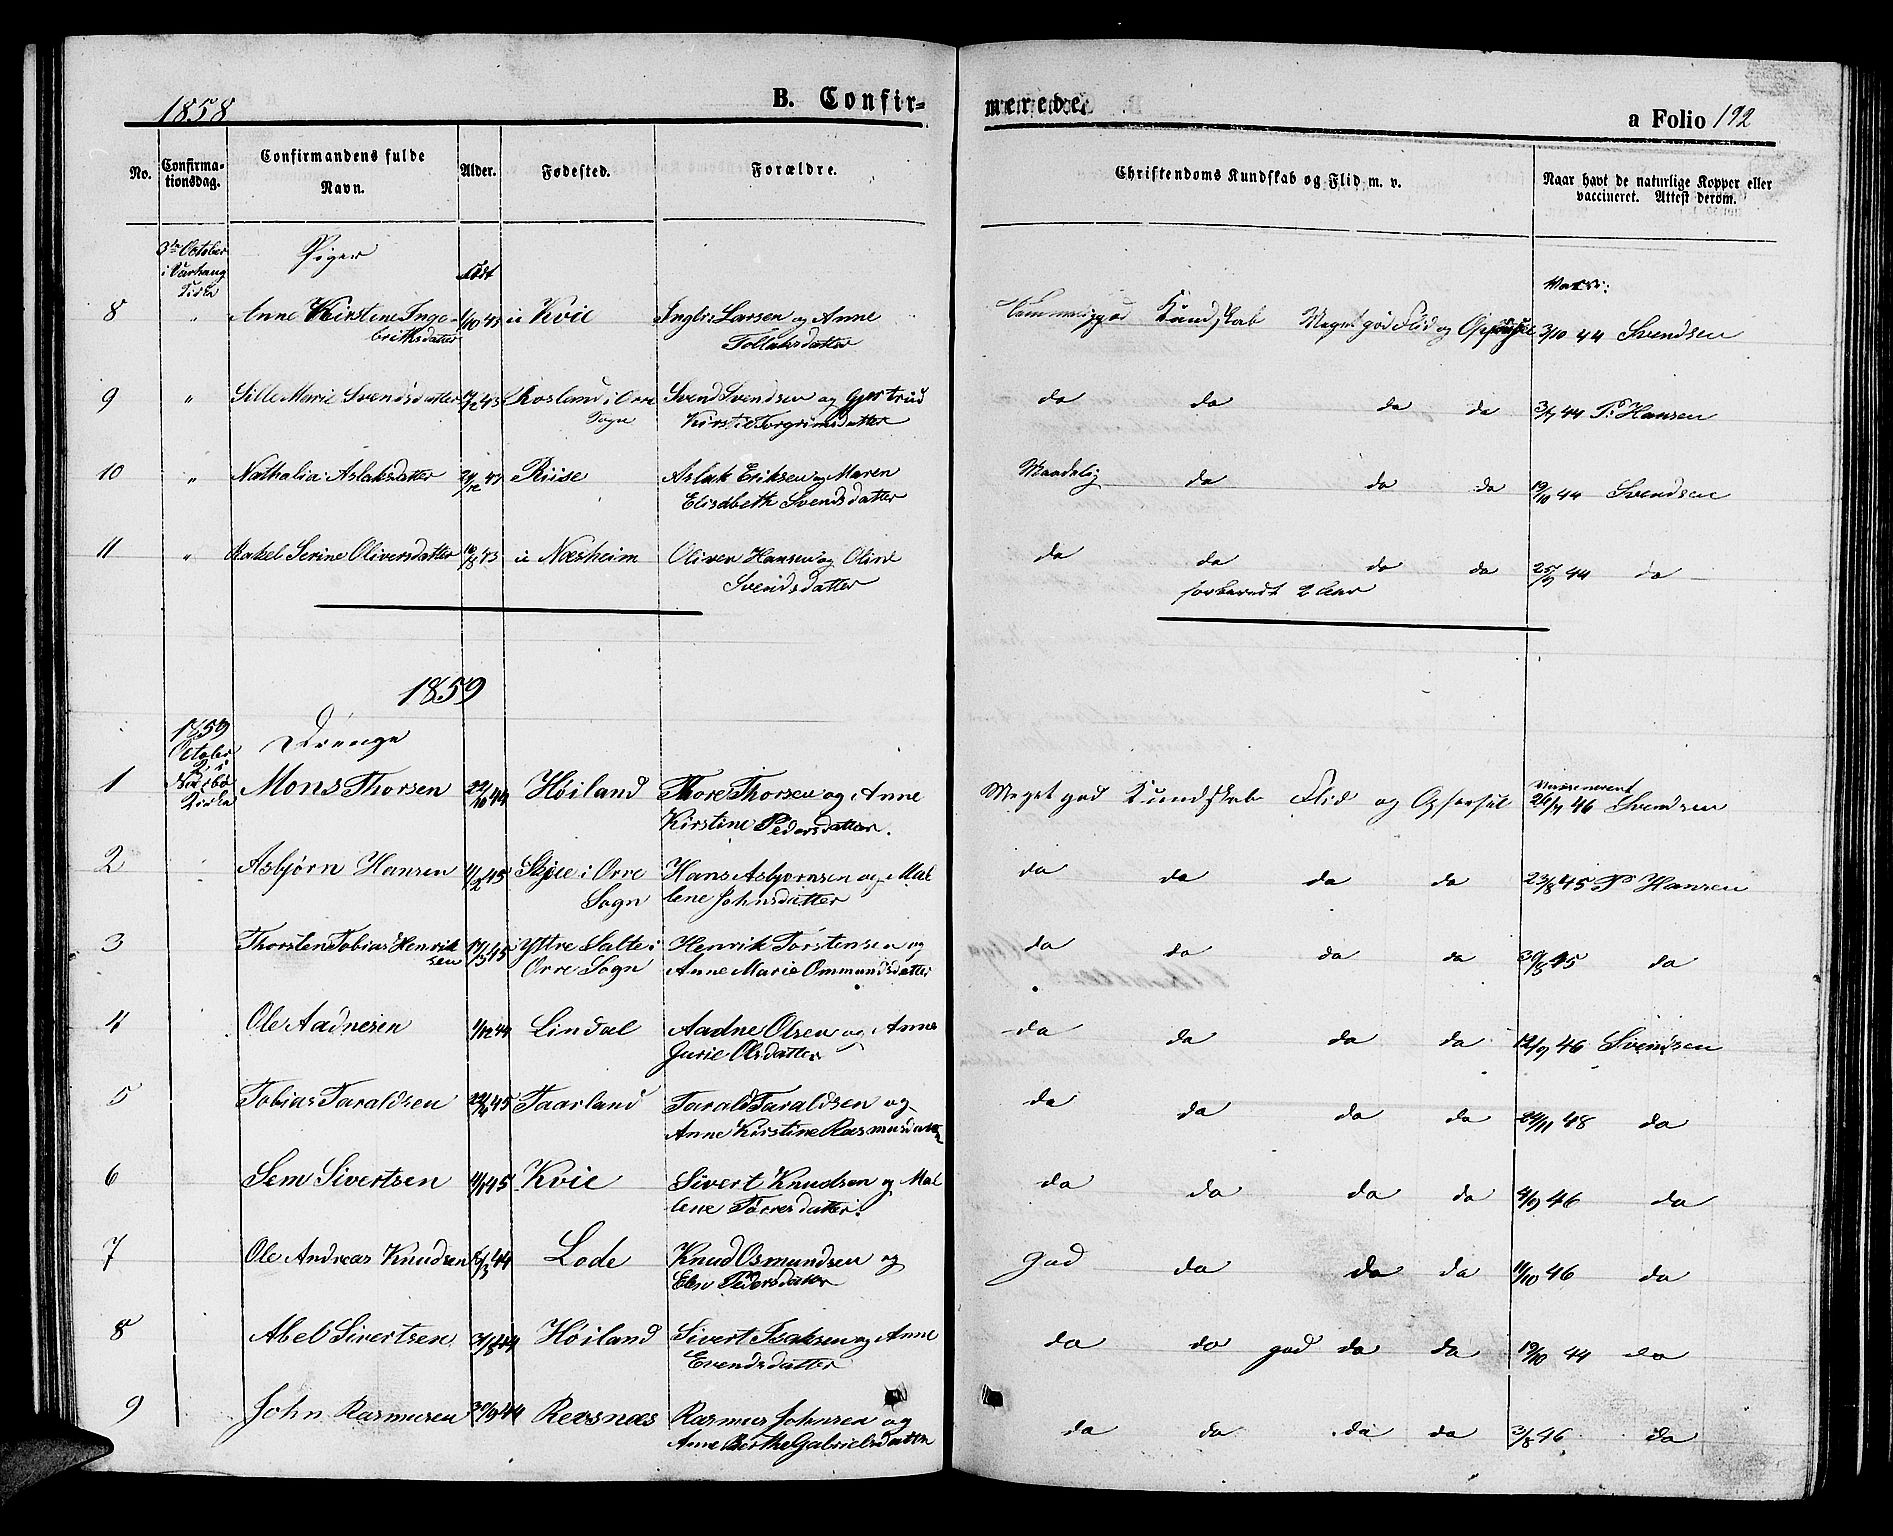 1858
B. Confir-
merede.
a Folio 192
No.
Confirma-
tionsdag.
Confirmandens fulde
Navn.
Alder.
Fødested.
Forældre.
Christendoms Kundskab og Flid m. v.
Naar havt de naturlige Kopper eller
vaccineret. Attest derom.
3die October
i Varhaug
Kirke
Piger
født
Vacc:
8 " Anne Kirstine Inge-
britsdatter
Kvie Ingbr: Larsen og Anne
Tollaksdatter
Kundskab Meget god Flid og Opførsel 3/10 44 Svendsen
9 " Sille Marie Svendsdatter Rosland i Orre
Sogn
Svend Svendsen og Gjertrud
Kirstie Torgrimsdatter
do do do do 3/7 44 P: Hansen
10 " Nathalia Aslaksdatter Riise Aslak Eriksen og Maren
Elisabeth Svendsdatter
Maadelig do do do 19/10 44 Svendsen
11 " Rakel Serine Oliversdatter Næsheim Oliver Hansen og Oline
Svendsdatter
do do do do 25/9 44 do
forberedt 2 Aar
1859
1859
October
2 i
Nærbø
Kirke
Drenge
1 Mons Thorsen 29/10 44 Høiland Thore Thorsen og Anne
Kirstine Pedersdatter.
Meget god Kundskab Flid og Opførsel Vaccineret
26/9 46 Svendsen
2 Asbjørn Hansen 11/2 45 Skjæe i Orre
Sogn
Hans Asbjørnsen og Mal
lene Johnsdatter
do do do do 23/8 45 P Hansen
3 Thorsten Tobias Henrik
sen
17/5 45 Ystre Salte i
Orre Sogn
Henrik Torstensen og
Anne Marie Ommundsdatter
do do do do 30/8 45 do
4 Ole Aadnesen 1/12 44 Lindal Aadne Olsen og Anne
Gurie Olsdatter
do do do do 12/9 46 Svendsen
5 Tobias Taraldsen Taarland Tarald Taraldsen og
Anne Kirstine Rasmusdatter
do do do do 24/11 48 do
6 Sem Sivertsen 11/1 45 Kvie Sivert Knudsen og Mal
lene Torresdatter.
do do do do 4/9 46 do
7 Ole Andreas Knudsen 6/3 44 Lode Knud Osmundsen og
Elen Pedersdatter
god do do do 11/10 46 do
8 Abel Sivertsen 31/8 44 Høiland Sivert Isaksen og Anne
Evendsdatter
do do god do do 19/10 44 do
9 John Rasmusen 30/9 44 Reisnæs Rasmus Johnsen og
Anne Berthe Gabrielsdatter
do do do do 3/8 46 do